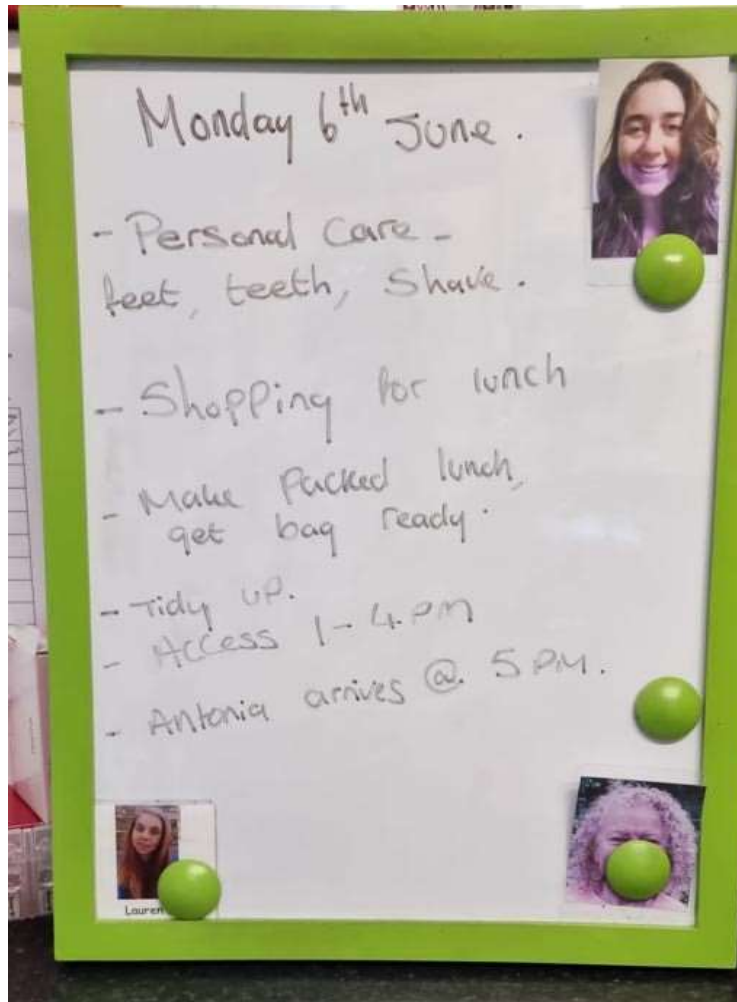 Monday 6th June.
- Personal Care -
feet, teeth, Shave.
- Shopping for lunch
- Make Packed lunch,
get bag ready.
- Tidy up.
- Access 1-4.PM
- Antonia arrives @. 5 PM.
Lauren